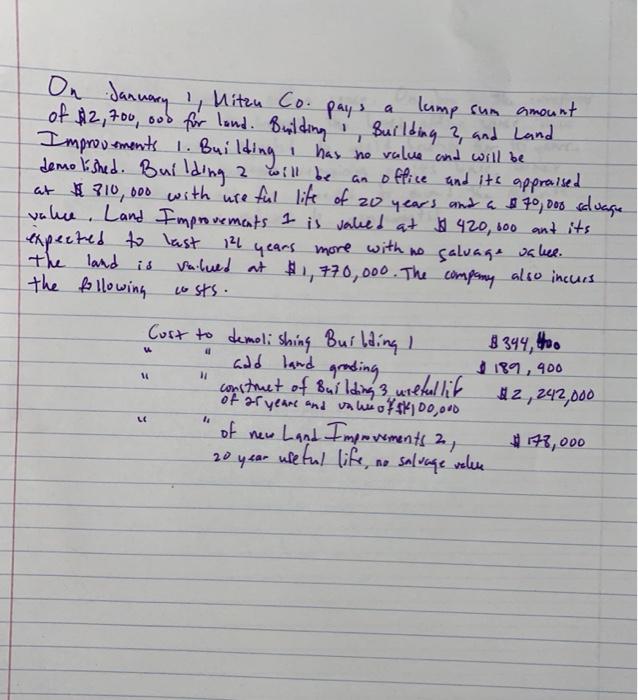 On January 1, Mitzu Co. pays a lump sum amount
of $2,700,000 for land. Building 1, Building 2, and Land
Improvements 1. Building 1 has no value and will be
demolished. Building 2 will be an office and its appraised
at $ 810,000 with useful life of 20 years and a $70,000 salvage
value. Land Improvements 1 is valued at $ 420,000 and its
expected to last 12 years more with no salvage value.
The land is valued at $1,770,000. The company also incurs
the following costs.
Cost to demolishing Building 1 $344,400
" " add land grading $189,900
" " construct of Building 3 useful lif $2,242,000
of 25 years and value of $ 100,000
" " of new Land Improvements 2, $ 178,000
20 year useful life, no salvage value